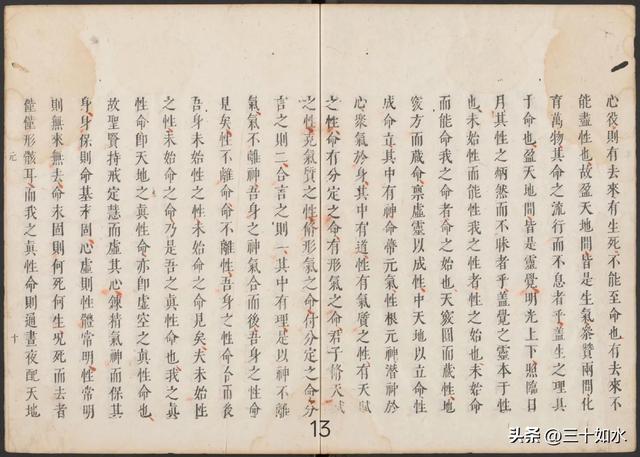 心役則有去來有生死不能至命也有去來不
能盡性也故盈天地間皆是生氣參贊兩間化
育萬物其命之流行而不息者乎蓋生之理具
于命也盈天地間皆是靈覺明光上下照臨日
月其性之炳然而不昧者乎蓋覺之靈本于性
也未始性而能性我之性者性之始也未始命
而能命我之命者命之始也天竅圓而藏性地
竅方而藏命稟虛靈以成性中天地以立命性
成命立其中有神命蒂元氣性根元神潛神於
心聚氣於身其中有道性有氣質之性有天賦
之性命有分定之命有形氣之命君子修天賦
之性克氣質之性修形氣之命付分定之命分
言之則二合言之則一其中有理是以神不離
氣氣不離神吾身之神氣合而後吾身之性命
見矣性不離命命不離性吾身之性命合而後
吾身未始性之性未始命之命見矣夫未始性
之性未始命之命乃是吾之真性命也我之真
性命即天地之真性命亦即虛空之真性命也
故聖賢持戒定慧而虛其心鍊精氣神而保其
身身保則命基永固心虛則性體常明性常明
則無來無去命永固則何死何生況死而去者
僅僅形骸耳而我之真性命則通晝夜配天地
元 十
13
头条 @三十如水